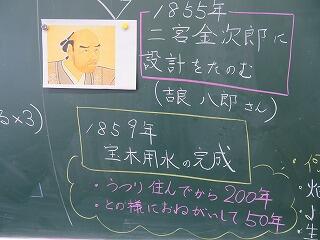 1855年
二宮金次郎に
設計をたのむ
(吉良 八郎さん)
る×3)
1859年
宝木用水の完成
・うつり住んでから200年
・との様におねがいして50年